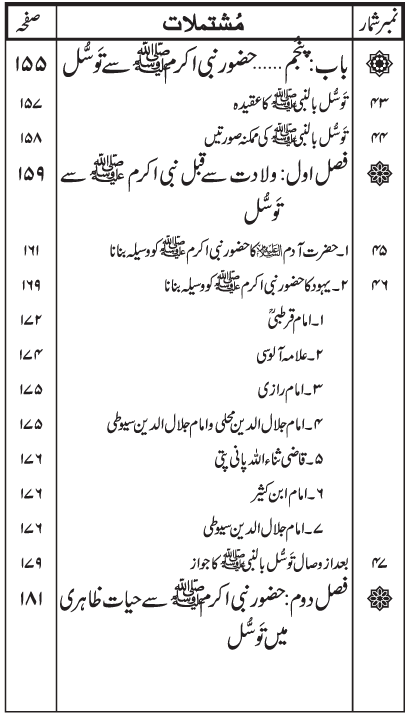 نمبر شمار مُشتملات صفحہ
باب: پنجم ...... حضور نبی اکرم ﷺ سے توسّل ۱۵۵
۴۳ توسّل بالنبی ﷺ کا عقیدہ ۱۵۷
۴۴ توسّل بالنبی ﷺ کی ممکنہ صورتیں ۱۵۸
فصل اول: ولادت سے قبل نبی اکرم ﷺ سے ۱۵۹
توسّل
۴۵ ۱۔ حضرت آدم علیہ السلام کا حضور نبی اکرم ﷺ کو وسیلہ بنانا ۱۶۱
۴۶ ۲۔ یہود کا حضور نبی اکرم ﷺ کو وسیلہ بنانا ۱۶۹
۱۔ امام قرطبیؒ ۱۷۲
۲۔ علامہ آلوسی ۱۷۴
۳۔ امام رازی ۱۷۵
۴۔ امام جلال الدین محلی و امام جلال الدین سیوطی ۱۷۵
۵۔ قاضی ثناء اللہ پانی پتی ۱۷۶
۶۔ امام ابن کثیر ۱۷۶
۷۔ امام جلال الدین سیوطی ۱۷۶
۴۷ بعد از وصال توسّل بالنبی ﷺ کا جواز ۱۷۹
فصل دوم: حضور نبی اکرم ﷺ سے حیات ظاہری ۱۸۱
میں توسّل